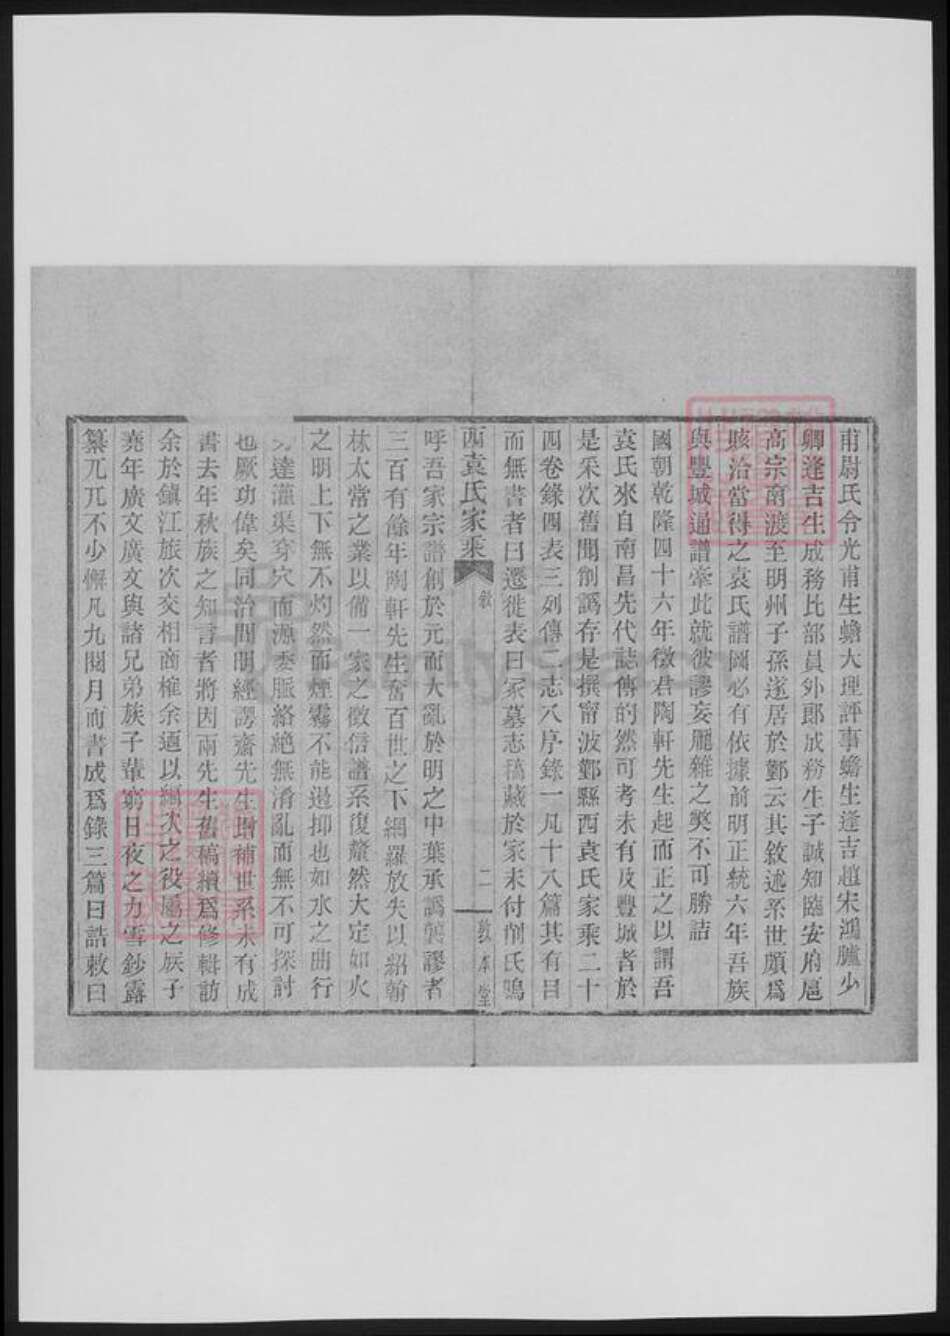 甫尉氏令光甫生蟾大理評事蟾生逢吉趙宋鴻臚少
卿逢吉生成務比部員外郎成務生子誠知臨安府扈
高宗南渡至明州子孫遂居於鄞云其敘述系世頗爲
賅洽當得之袁氏譜圖必有依據前明正統六年吾族
與豐城通譜牽此就彼謬妄厖雜之獘不可勝詰
國朝乾隆四十六年徵君陶軒先生起而正之以謂吾
袁氏來自南昌先代誌傳的然可考未有及豐城者於
是采次舊聞削譌存是撰甯波鄞縣西袁氏家乘二十
四卷錄四表三列傳二志八序錄一凡十八篇其有目
而無書者曰遷徙表曰冢墓志稿藏於家未付削氏嗚
西袁氏家乘 敘 二 敦本堂
呼吾家宗譜創於元而大亂於明之中葉承譌襲謬者
三百有餘年陶軒先生奮百世之下網羅放失以紹翰
林太常之業以備一家之徵信譜系復釐然大定如火
之明上下無不灼然而煙霧不能遏抑也如水之曲行
達滙渠穿穴而源委脈絡絕無淆亂而無不可探討
也厥功偉矣同治間明經諤齋先生增補世系未有成
書去年秋族之知言者將因兩先生舊稿續爲修輯訪
余於鎮江旅次交相商榷余遂以編次之役屬之族子
堯年廣文廣文與諸兄弟族子輩窮日夜之力雪鈔露
纂兀兀不少懈凡九閱月而書成爲錄三篇曰誥敕曰